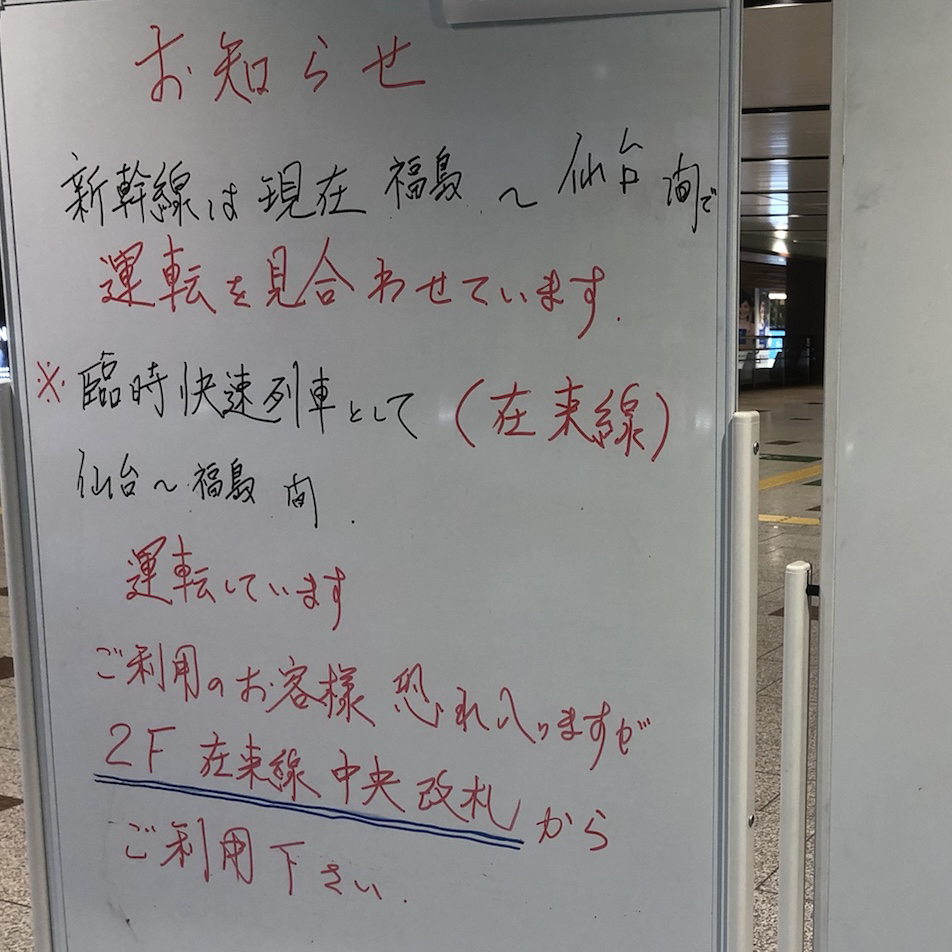 お知らせ
新幹線は現在 福島 ～ 仙台 間で
運転を見合わせています.
※ 臨時快速列車として (在来線)
仙台～福島 間.
運転しています
ご利用のお客様 恐れ入りますが
2F 在来線 中央 改札 から
ご利用下さい.